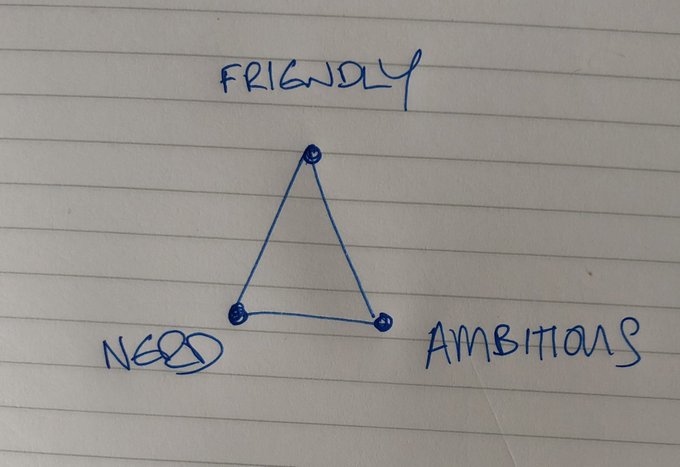 FRIENDLY
NERD
AMBITIOUS